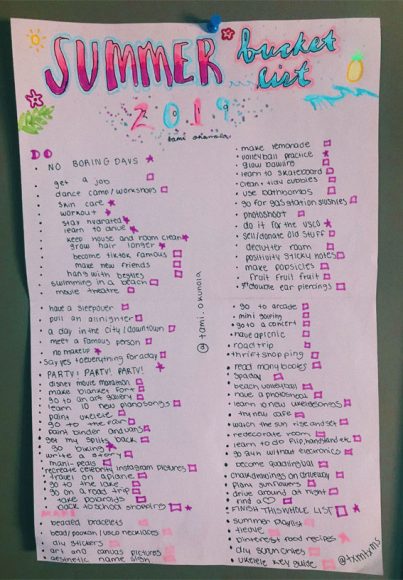 SUMMER bucket list
2019
tami okunola
DO
NO BORING DAYS
get a job
dance camp/workshops
skin care
workout
stay hydrated
learn to drive
keep house and room clean
grow hair longer
become tiktok famous
make new friends
hang with besties
swimming in a beach
movie theatre
have a sleepover
pull an allnighter
a day in the city/downtown
meet a famous person
no makeup
say yes to everything for a day
PARTY! PARTY! PARTY!
disney movie marathon
make blanket fort
go to an art gallery
learn 10 new piano songs
paint ukelele
go to the fair
paint binder and vans
get my splits back
go biking
write a story
mani-pedis
recreate celebrity instagram pictures
travel on a plane
go to the lake
go on a road trip
take polaroids
back to school shopping
MAKE
beaded bracelets
bead/pookah/vsco necklaces
diy stickers
art and canvas pictures
aesthetic name sign
@tami.okunola
make lemonade
volleyball practice
glow bowling
learn to skateboard
clean + tidy cubbies
use bathbombs
go for gas station slushies
photoshoot
do it for the vsco
sell/donate old stuff
declutter room
positivity sticky notes
make popsicles
fruit fruit fruit
double ear piercings
go to arcade
mini golfing
go to a concert
have a picnic
road trip
thrift shopping
read many books
spa day
beach volleyball
have a photoshoot
learn 10 new uke songs
try new cafe
watch the sun rise and set
redecorate room
learn to do flip, handstand etc.
go 24h without electronics
become good in gball
chalk drawings on driveway
plant sunflowers
drive around at night
find a ♡
FINISH THIS WHOLE LIST
summer playlist
tiedye
pinterest food recipes
diy scrunchies
ukelele key guide